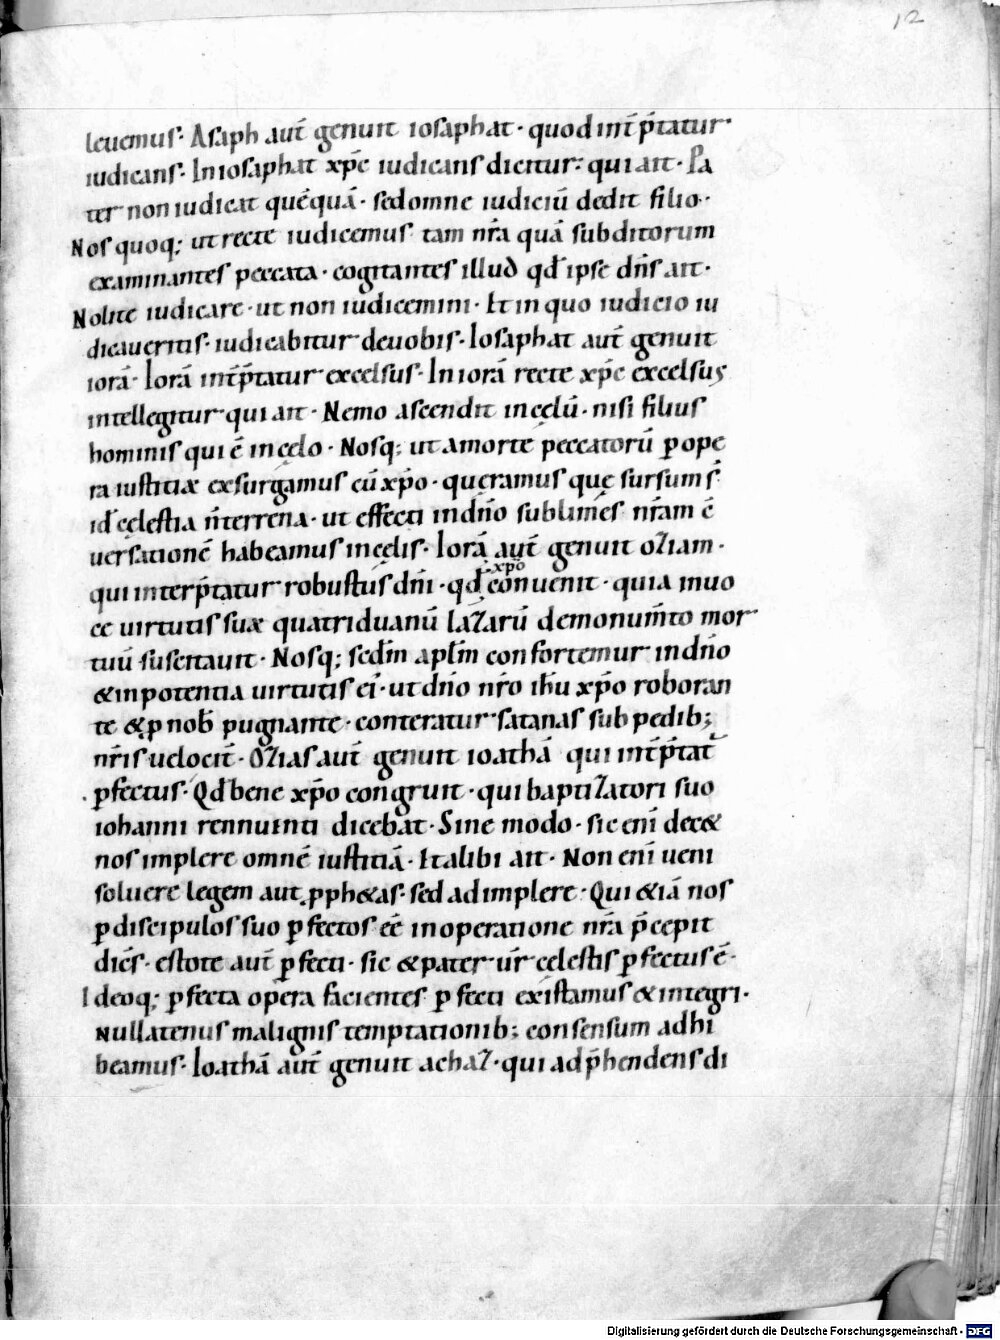 12
leuemus. Asaph aut̄ genuit iosaphat. quod int̄p̄tatur
iudicans. In iosaphat xp̄c iudicans dicitur. qui ait. Pa
ter non iudicat quēquā. sed omne iudiciū dedit filio.
Nos quoq; ut recte iudicemus tam nr̄a quā subditorum
examinantes peccata. cogitantes illud qd̄ ipse dn̄s ait.
Nolite iudicare. ut non iudicemini. Et in quo iudicio iu
dicaueritis. iudicabitur de uobis. Iosaphat aut̄ genuit
iorā. Iorā int̄p̄tatur excelsus. In iorā recte xp̄c excelsus
intellegitur qui ait. Nemo ascendit in cęlū. nisi filius
hominis qui ē in cęlo. Nosq; ut a morte peccatorū ꝑ ope
ra iustitiæ exsurgamus cū xp̄o. quęramus quę sursum s̄
id ̄ cęlestia n̄ terrena. ut effecti in dn̄o sublimes nr̄am c̄
uersationē habeamus in cęlis. Iorā aut̄ genuit oziam.
qui interp̄tatur robustus dn̄i. qd̄ xp̄o conuenit. quia in uo
ce uirtutis suæ quatriduanū lazarū de monum̄to mor
tuū suscitauit. Nosq; sedm̄ aplm̄ confortemur in dn̄o
& in potentia uirtutis ei᾽. ut dn̄o nr̄o ih̄u xp̄o roboran
te & ꝑ nob̄ pugnante. conteratur satanas sub pedib;
nr̄is uelocit̄. Ozias aut̄ genuit ioathā qui int̄p̄tat᾽
ꝑfectus. Qd̄ bene xp̄o congruit. qui baptizatori suo
iohanni rennuenti dicebat. Sine modo. sic enī dec&
nos implere omnē iustitiā. Et alibi ait. Non enī ueni
soluere legem aut ꝓph&as. sed adimplere. Qui &iā nos
ꝑ discipulos suo ꝑfectos eē in operatione nr̄a p̄cepit
dicēs. estote aut̄ ꝑfecti. sic & pater ur̄ cęlestis ꝑfectus ē.
Ideoq; ꝑfecta opera facientes ꝑfecti existamus & integri.
Nullatenus malignis temptationib; consensum adhi
beamus. Ioathā aut̄ genuit achaz. qui adp̄hendens di
Digitalisierung gefördert durch die Deutsche Forschungsgemeinschaft - DFG